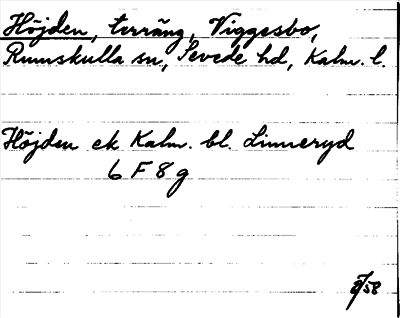 Höjden, terräng, Viggesbo,
Rumskulla sn, Sevede hd, Kalm. l.
Höjden ek Kalm. bl. Linneryd
6 F 8 g